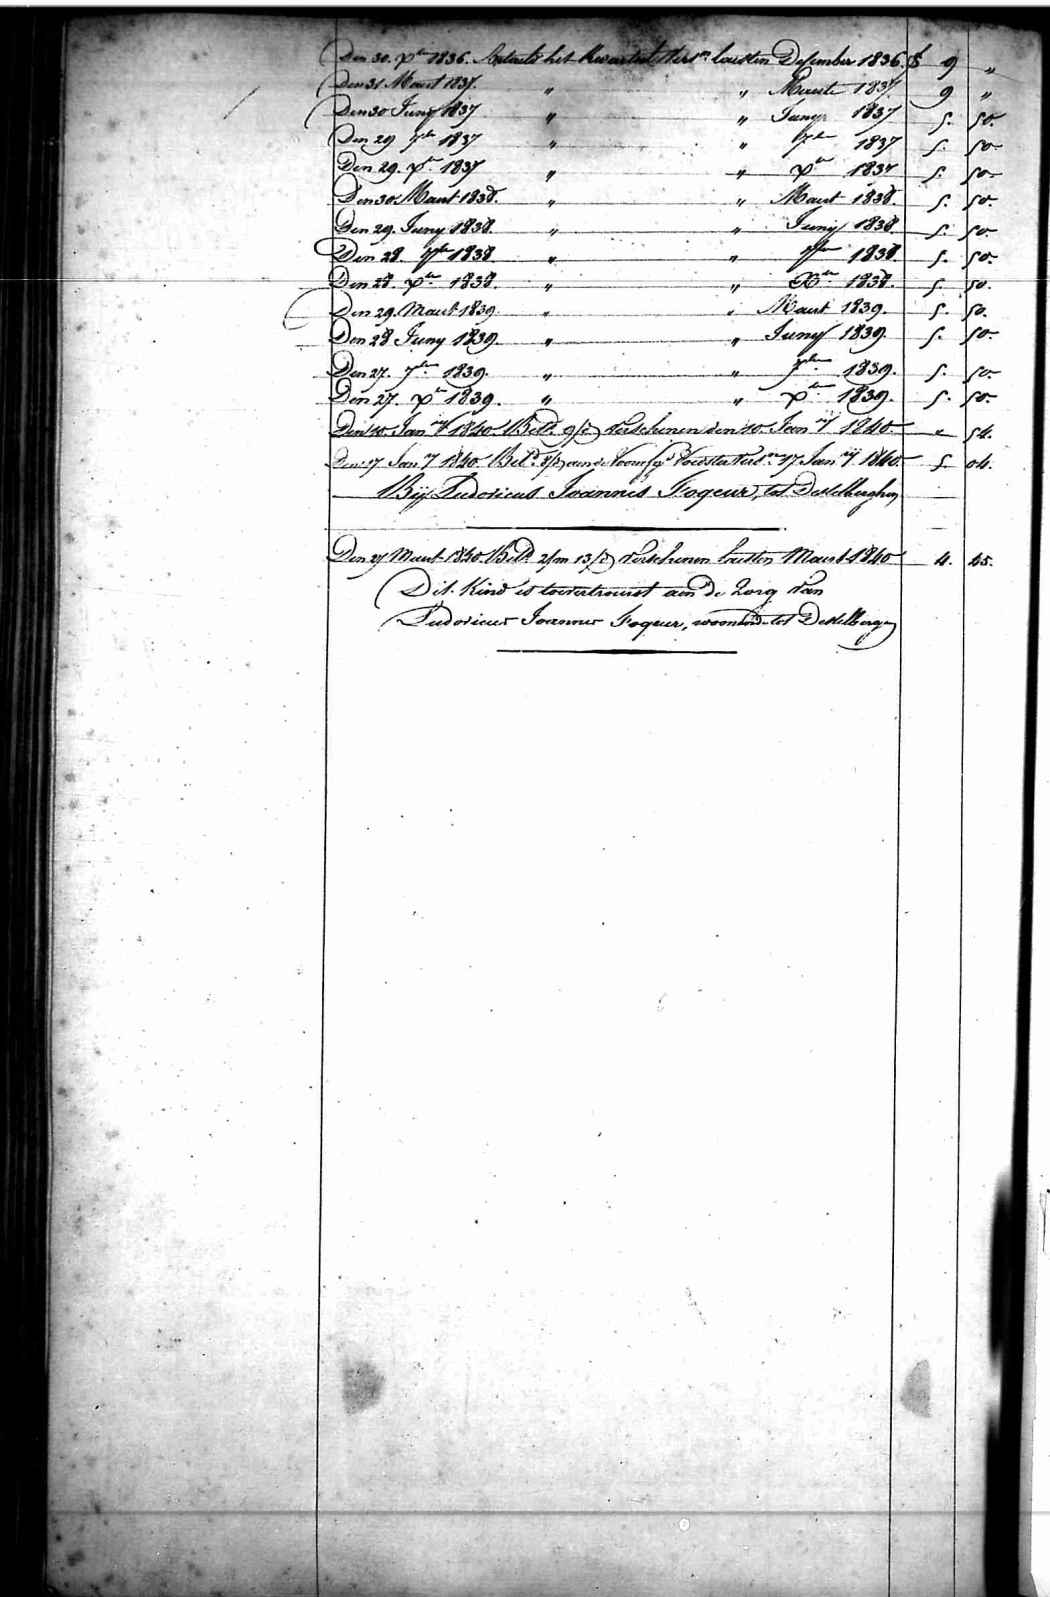 Den 30. Xber 1836. Betaelt het kwartael Versn lausten Desember 1836. f 9 „
Den 31 Maart 1837. „ „ Maerte 1837 9 „
Den 30 Juny 1837 „ „ Juny 1837 5. 50.
Den 29 7ber 1837 „ „ 7ber 1837 5. 50.
Den 29. Xber 1837 „ „ Xber 1837 5. 50.
Den 30. Maart 1838. „ „ Maart 1838. 5. 50.
Den 29. Juny 1838. „ „ Juny 1838. 5. 50.
Den 28. 7ber 1838 „ „ 7ber 1838. 5. 50.
Den 28. Xber 1838. „ „ Xber 1838. 5. 50.
Den 29. Maart 1839. „ „ Maart 1839. 5. 50.
Den 28 Juny 1839. „ „ Juny 1839. 5. 50.
Den 27. 7ber 1839. „ „ 7ber 1839. 5. 50.
Den 27. Xber 1839. „ „ Xber 1839. 5. 50.
Den 10 Jany 1840. Betd. 9/d Verschenen den 10 Jany 1840. „ 54.
Den 17 Jany 1840 Betd aen de Versn 17 Jany 1840. 5. 04.
Bij Ludovicus Joannis Foqeur, tot Destelberghen
Den 27 Maart 1840 Betd 2/m 13/d Verschenen lausten Maart 1840 4. 45.
Dit Kind is toevertrouwt aen de Zorg van
Ludovicus Joannes Foqeur, woonende tot Destelbergen